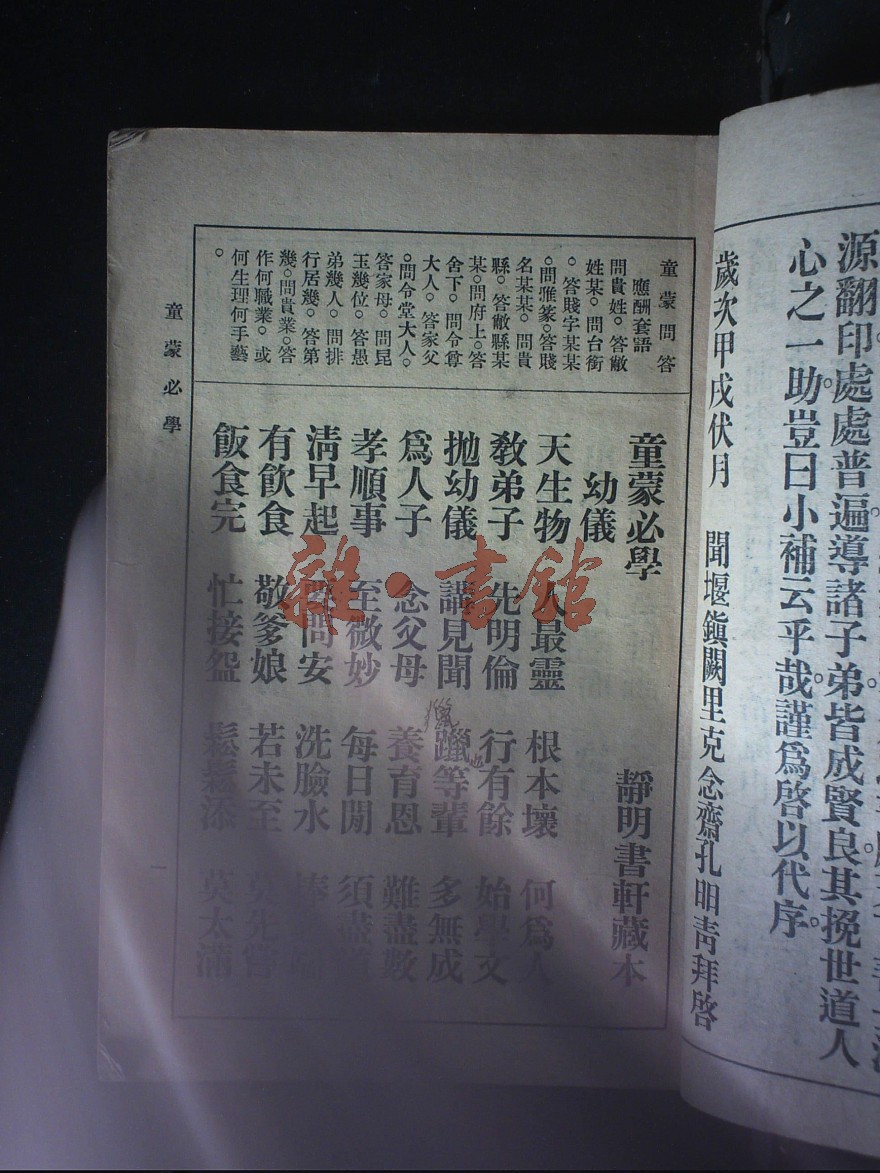 源翻印處處普遍導諸子弟皆成賢良其挽世道人
心之一助豈曰小補云乎哉謹爲啓以代序
歲次甲戌伏月　聞堰鎮闕里克念齋孔明青拜啓
童蒙問答
應酬套語
問貴姓。答敝
姓某。問台銜
。答賤字某某
。問雅篆。答賤
名某某。問貴
縣。答敝縣某
某。問府上。答
舍下。問令尊
大人。答家父
。問令堂大人。
答家母。問昆
玉幾位。答愚
弟幾人。問排
行居幾。答第
幾。問貴業。答
作何職業。或
何生理何手藝
。
童蒙必學　靜明書軒藏本
幼儀
天生物　人最靈　根本壞　何爲人
教弟子　先明倫　行有餘　始學文
拋幼儀　講見聞　躐等輩　多無成
爲人子　念父母　養育恩　難盡數
孝順事　至微妙　每日間　須盡
清早起　問安　洗臉水
有飲食　敬爹娘　若未至　莫先嘗
飯食完　忙接盌　鬆鬆添　莫太滿
童蒙必學
一
雜·書館